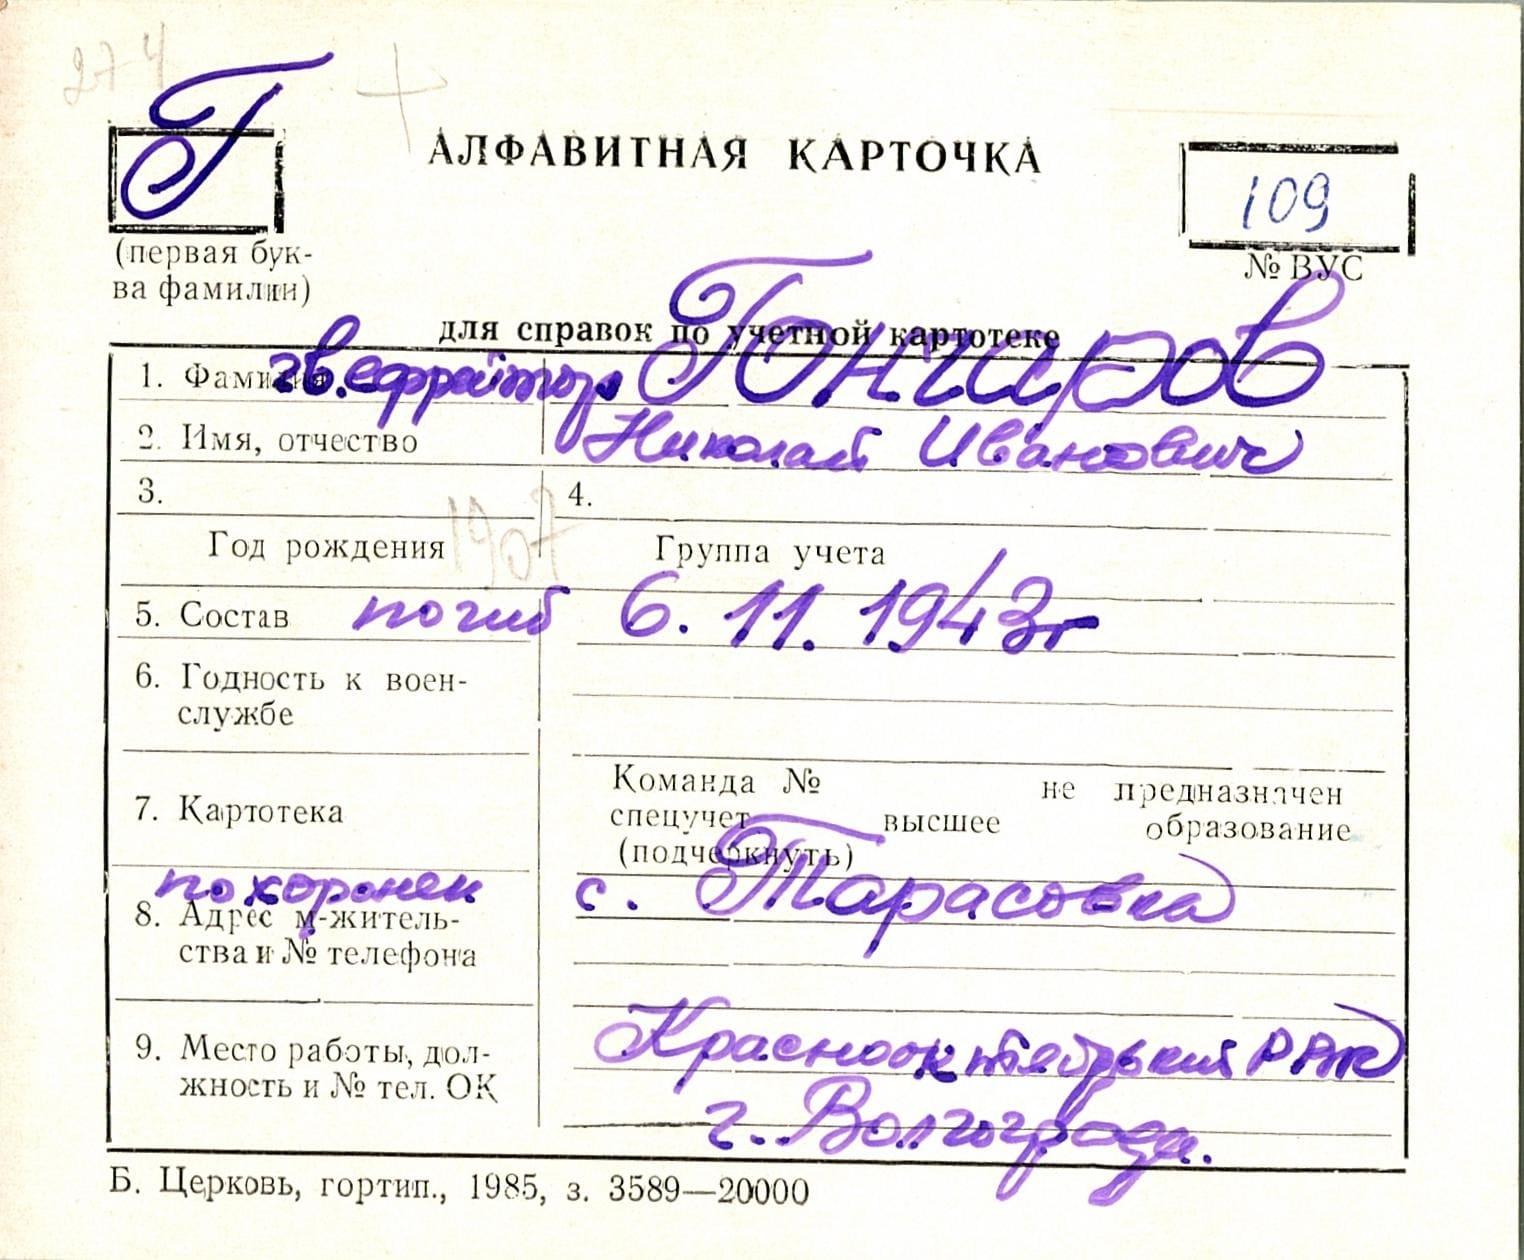 274
Г
АЛФАВИТНАЯ КАРТОЧКА
109
(первая бук-
ва фамилии)
№ ВУС
для справок по учетной картотеке
1. Фамилия гв. ефрейтор Гончаров
2. Имя, отчество Николай Иванович
3. 4.
Год рождения 1907 Группа учета
5. Состав погиб 6.11.1943г
6. Годность к воен-
службе
Команда № не предназначен
7. Картотека спецучет высшее образование
(подчеркнуть)
похоронен с. Тарасовка
8. Адрес м-житель-
ства и № телефона
Краснооктябрьский РВК
9. Место работы, дол-
жность и № тел. ОК
г. Волгограда.
Б. Церковь, гортип., 1985, з. 3589—20000